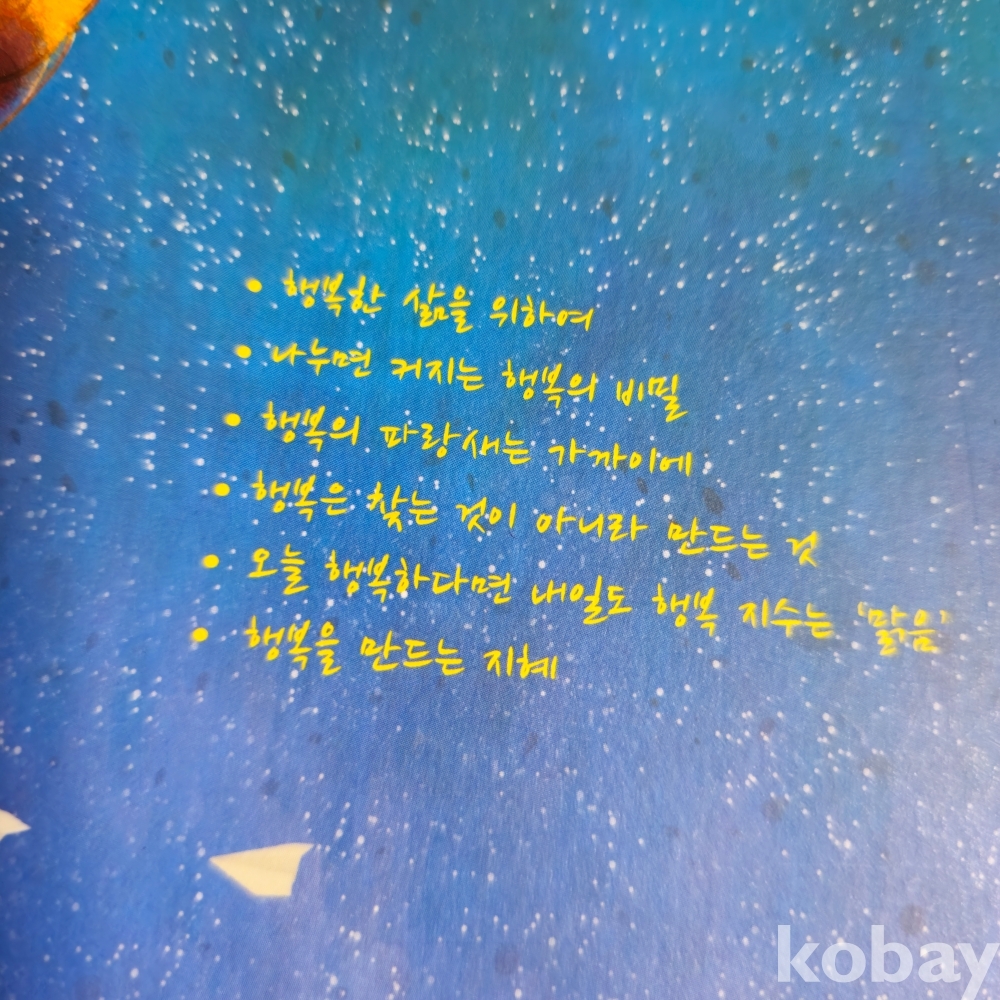 • 행복한 삶을 위하여
• 나누면 커지는 행복의 비밀
• 행복의 파랑새는 가까이에
• 행복은 찾는 것이 아니라 만드는 것
• 오늘 행복하다면 내일도 행복 지수는 '맑음'
• 행복을 만드는 지혜
kobay